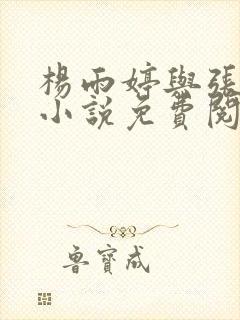 楊雨婷與張
小說免費閱
魯寶成